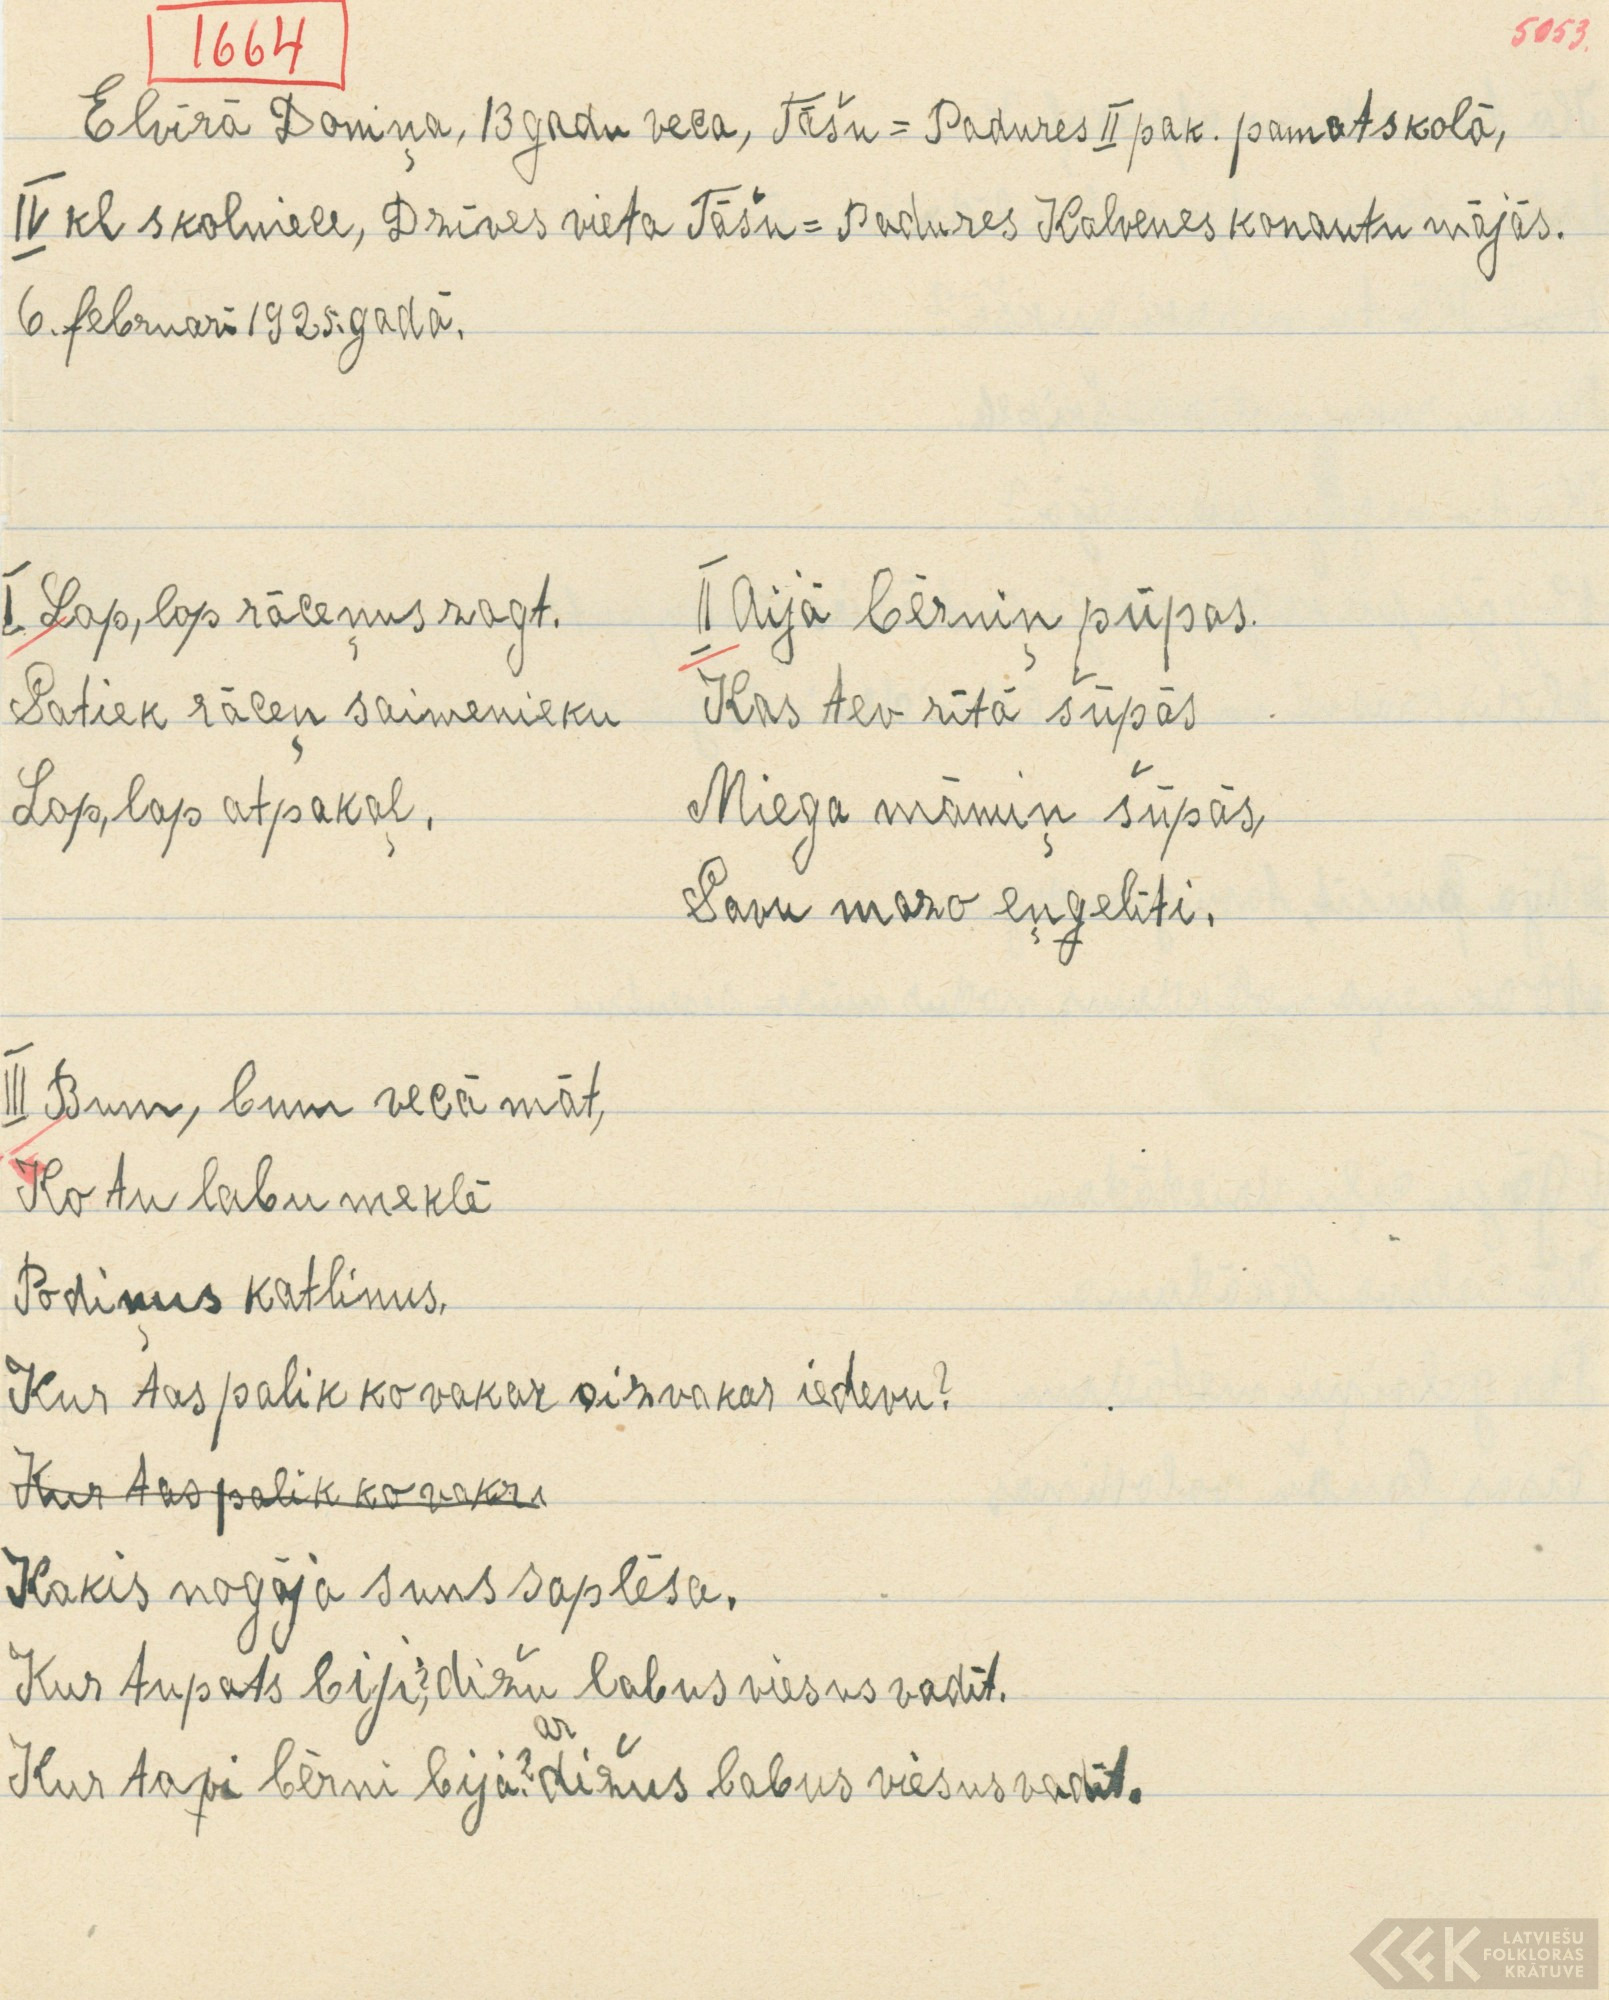 1664
5053.
Elvīrā Doniņa, 13 gadu veca, Tāšu = Padures II pak. pamatskolā,
IV kl skolniece, Dzīves vieta Tāšu = Padures Kalvenes konautu mājās.
6. februarī 1925. gadā.
I Lap, lap rāceņus zagt.
Satiek rāceņ saimenieku
Lap, lap atpakaļ.
II Aijā bērniņ pūpas.
Kas tev rītā šūpās
Miega māmiņ šūpās,
Savu mazo eņģelīti.
III Bum, bum vecā māt,
Ko tu labu meklē
Podiņus katlinus.
Kur tas palik ko vakar aizvakar iedevu?
Kur tas palik ko vakr
Kakis nogāja suns saplēsa.
Kur tu pats biji?, dižu labus viesus vadīt.
Kur tavi bērni bija? ar dižus labus viesus vadīt.
LATVIEŠU
FOLKLORAS
KRĀTUVE